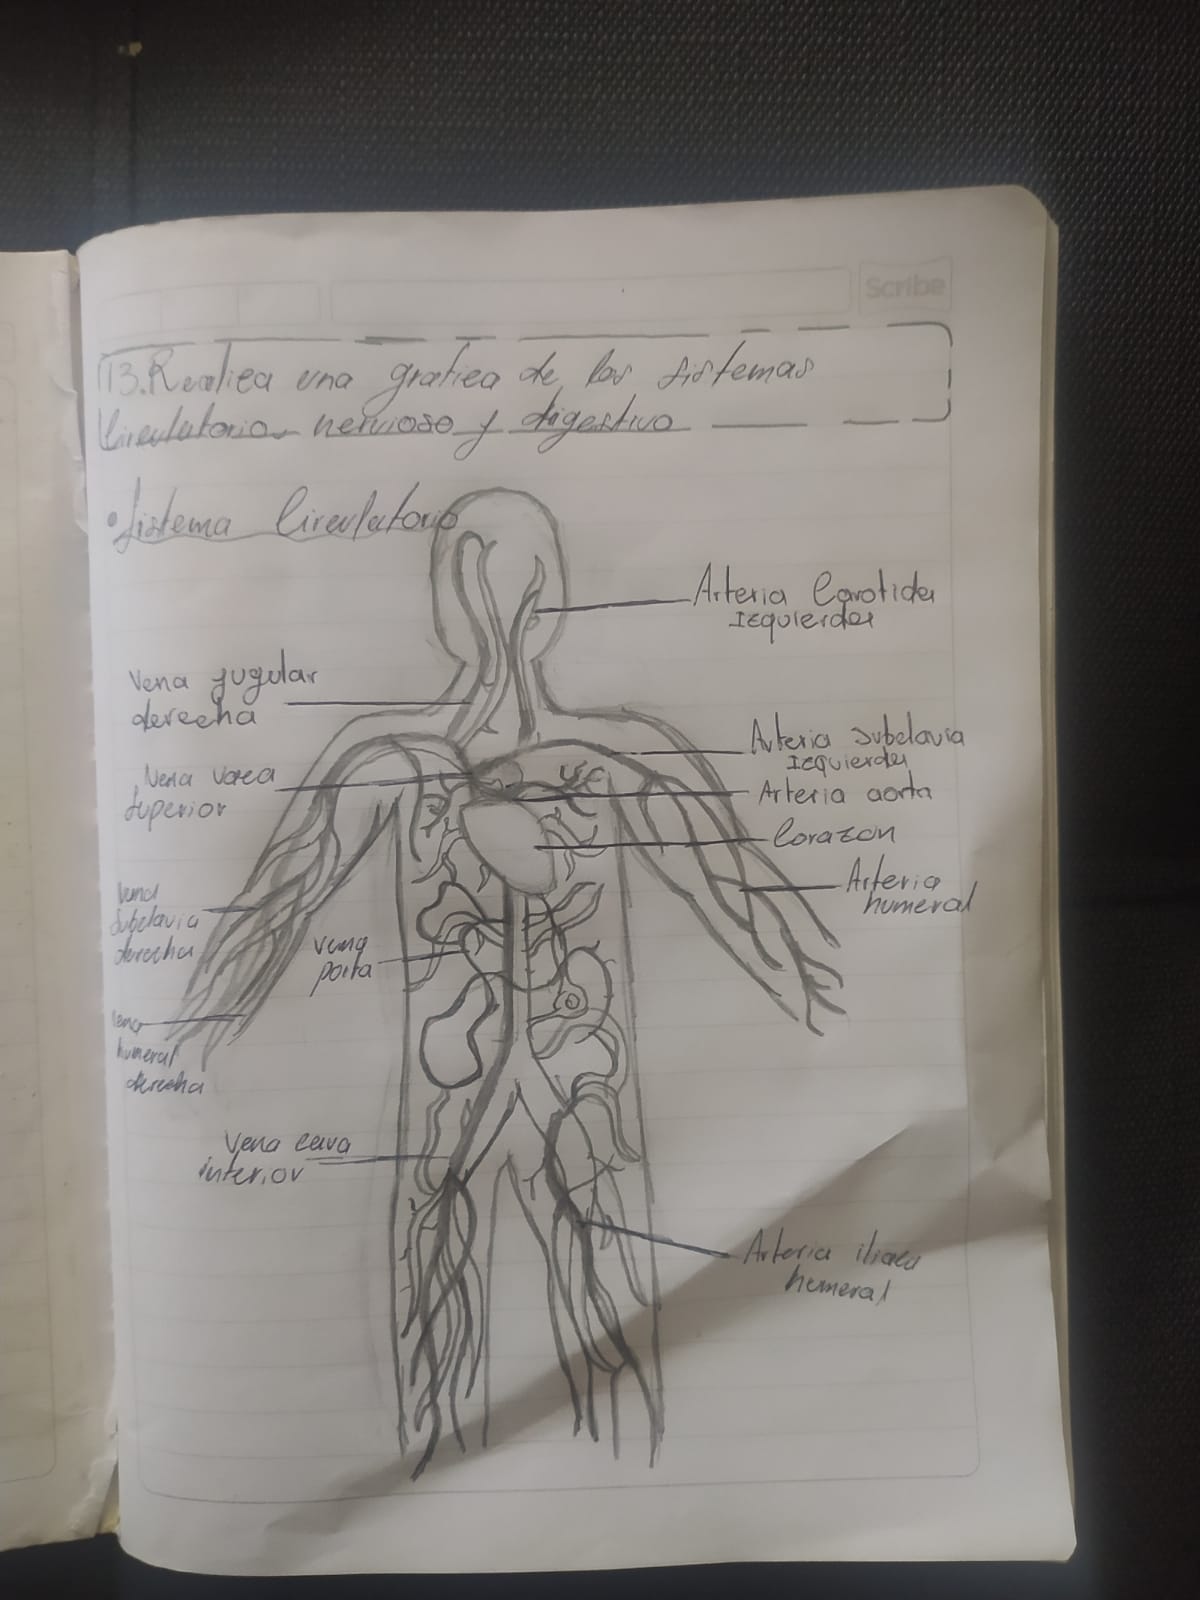 Scribe
13. Realiza una grafica de los sistemas
Circulatorio, nervioso y digestivo
• Sistema Circulatorio
Arteria Carotida
Izquierda
Vena yugular
derecha
Arteria Subclavia
Izquierda
Vena vaca
Superior
Arteria aorta
Corazon
Arteria
humeral
Vena
Subclavia
derecha
vena
porta
Vena
humeral
derecha
Vena cava
inferior
Arteria iliaca
humeral